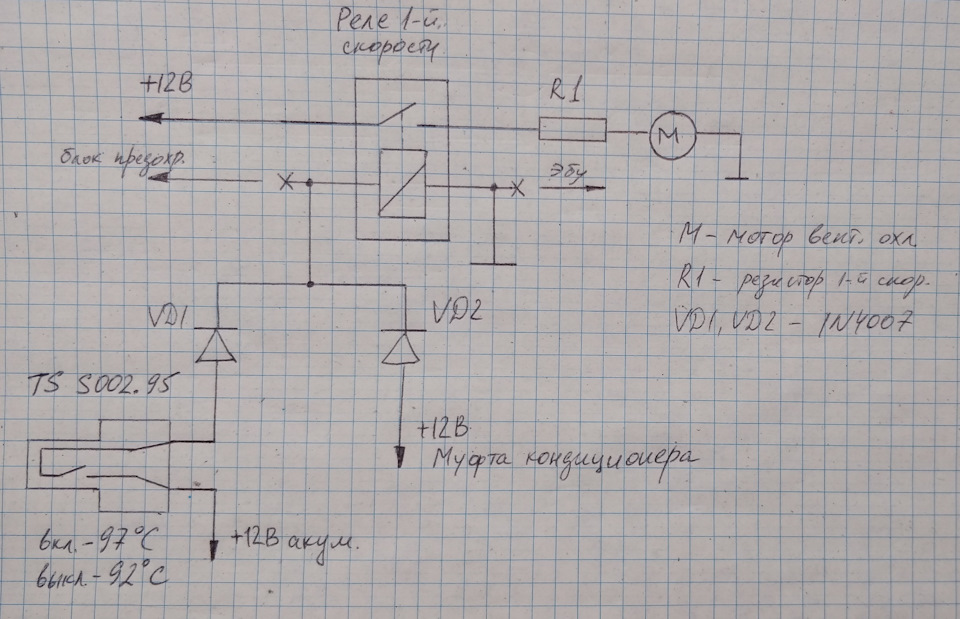 Реле 1-й.
скорости
+12В
R1
М
блок предохр.
Эбу
М - мотор вент. охл
R1 - резистор 1-й скор.
VD1, VD2 - 1N4007
VD1
VD2
TS S002.95
+12В
Муфта кондиционера
вкл. - 97°С
выкл - 92°С
+12В акум.